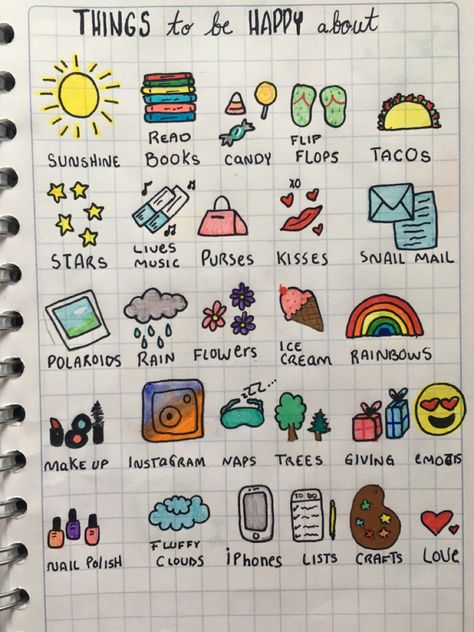 THINGS to be HAPPY about
SUNSHINE
READ
BOOKS
CANDY
FLIP
FLOPS
TACOS
STARS
LIVES
MUSIC
PURSES
XO
KISSES
SNAIL MAIL
POLAROIDS
RAIN
FLOWERS
ICE
CREAM
RAINBOWS
MAKE UP
INSTAGRAM
zzz...
NAPS
TREES
GIVING
emoJIS
NAIL POLISH
FLUFFY
CLOUDS
iPhones
TO DO
LISTS
CRAFTS
LOVE